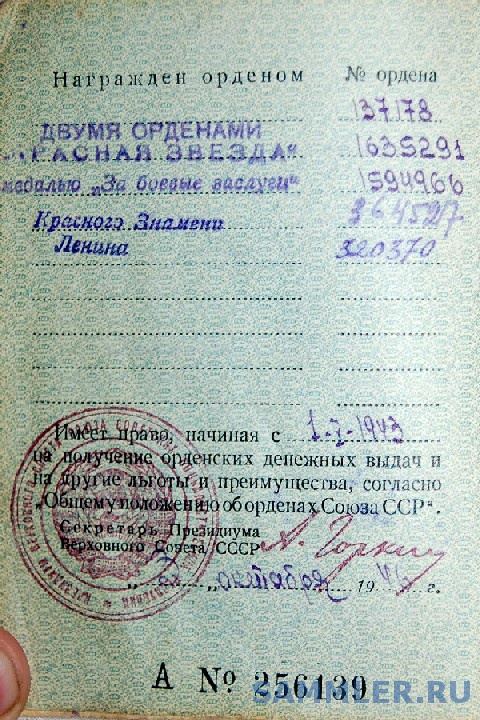 Награжден орденом № ордена
137178
ДВУМЯ ОРДЕНАМИ
„КРАСНАЯ ЗВЕЗДА“ 1635291
медалью „За боевые заслуги“ 1594966
Красного Знамени 364527
Ленина 320370
Имеет право, начиная с 1-7-1943
на получение орденских денежных выдач и
на другие льготы и преимущества, согласно
„Общему положению об орденах Союза ССР“.
Секретарь Президиума
Верховного Совета СССР А. Горкин
октября 1946 г.
А № 256139
SAMMLER.RU